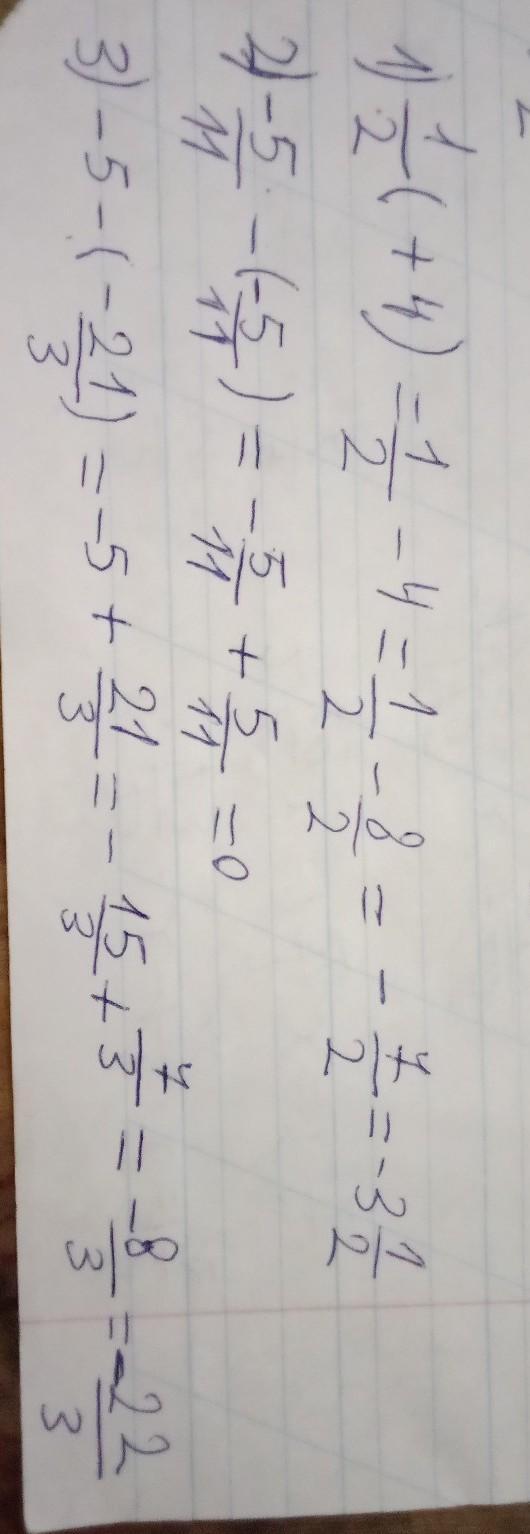 1) 1/2 (+4) = -1/2 - 4 = 1/2 - 8/2 = - 7/2 = -3 1/2
2) -5/11 - (-5/11) = - 5/11 + 5/11 = 0
3) -5 - (- 21/3) = -5 + 21/3 = - 15/3 + 7/3 = -8/3 = -22/3